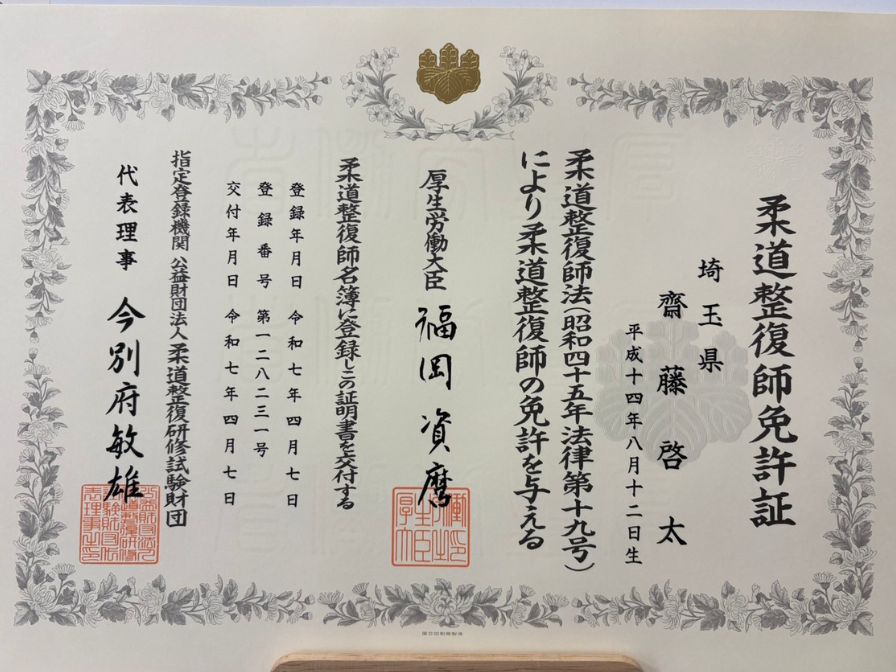 柔道整復師免許証
埼玉県
齋藤啓太
平成十四年八月十二日生
柔道整復師法(昭和四十五年法律第十九号)
により柔道整復師の免許を与える
厚生労働大臣 福岡資麿
柔道整復師名簿に登録しこの証明書を交付する
登録年月日 令和七年四月七日
登録番号 第一二八二三一号
交付年月日 令和七年四月七日
指定登録機関 公益財団法人柔道整復研修試験財団
代表理事 今別府敏雄